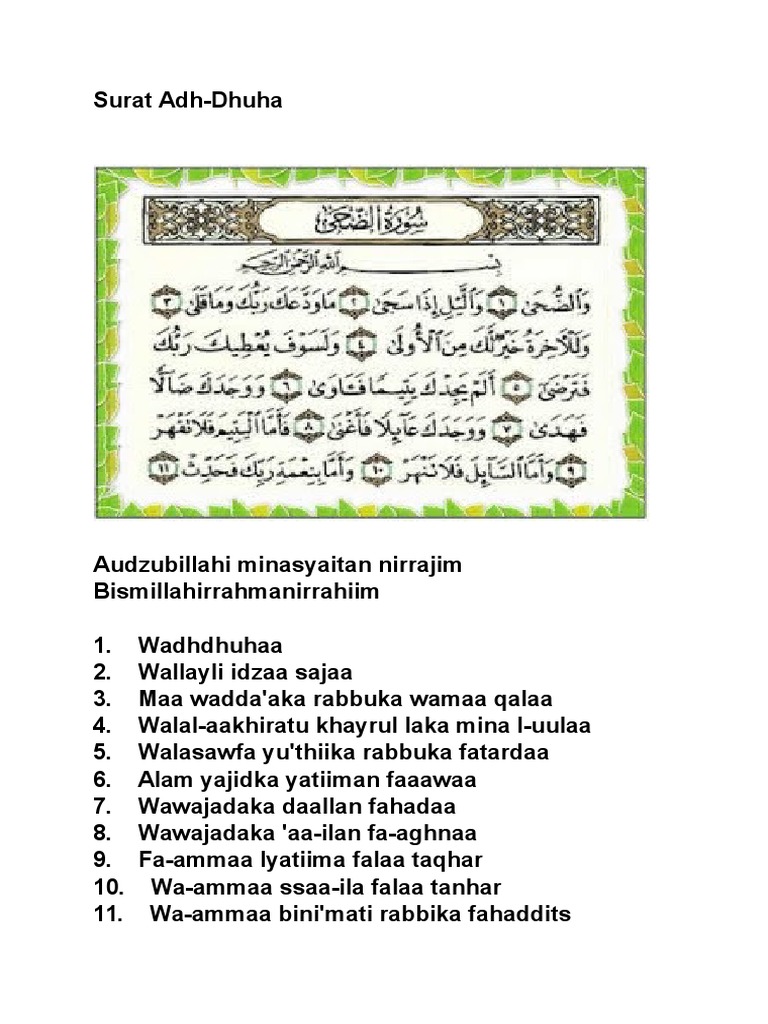 Surat Adh-Dhuha
سُورَةُ الضُّحَى
بِسْمِ اللَّهِ الرَّحْمَٰنِ الرَّحِيمِ
وَالضُّحَىٰ ١ وَاللَّيْلِ إِذَا سَجَىٰ ٢ مَا وَدَّعَكَ رَبُّكَ وَمَا قَلَىٰ ٣
وَلَلْآخِرَةُ خَيْرٌ لَّكَ مِنَ الْأُولَىٰ ٤ وَلَسَوْفَ يُعْطِيكَ رَبُّكَ
فَتَرْضَىٰ ٥ أَلَمْ يَجِدْكَ يَتِيمًا فَآوَىٰ ٦ وَوَجَدَكَ ضَالًّا
فَهَدَىٰ ٧ وَوَجَدَكَ عَائِلًا فَأَغْنَىٰ ٨ فَأَمَّا الْيَتِيمَ فَلَا تَقْهَرْ
٩ وَأَمَّا السَّائِلَ فَلَا تَنْهَرْ ١٠ وَأَمَّا بِنِعْمَةِ رَبِّكَ فَحَدِّثْ ١١
Audzubillahi minasyaitan nirrajim
Bismillahirrahmanirrahiim
1. Wadhdhuhaa
2. Wallayli idzaa sajaa
3. Maa wadda'aka rabbuka wamaa qalaa
4. Walal-aakhiratu khayrul laka mina l-uulaa
5. Walasawfa yu'thiika rabbuka fatardaa
6. Alam yajidka yatiiman faaawaa
7. Wawajadaka daallan fahadaa
8. Wawajadaka 'aa-ilan fa-aghnaa
9. Fa-ammaa lyatiima falaa taqhar
10. Wa-ammaa ssaa-ila falaa tanhar
11. Wa-ammaa bini'mati rabbika fahaddits